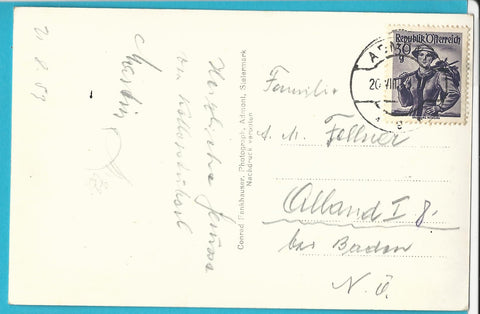 21. 8. 53
Herzlichste Grüsse
von
Martin
Conrad Fankhauser, Photograph, Admont, Steiermark
Nachdruck verboten
Republik Österreich
30 g
AD
20. VIII.
Familie
A. M. Fellner
Alland I 8.
bei Baden
N. Ö.